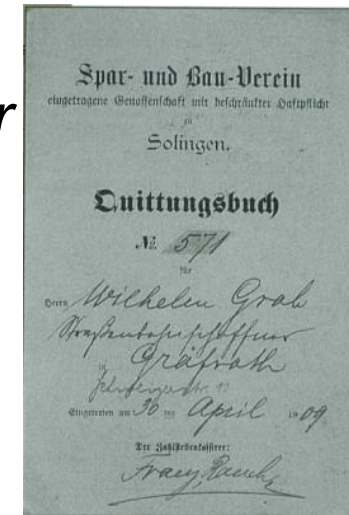 r
Spar- und Bau-Verein
eingetragene Genossenschaft mit beschränkter Haftpflicht
zu
Solingen.
Quittungsbuch
№ 571
für
Herrn Wilhelm Grah
Straßenbahnschaffner
in Gräfrath
Eingetreten am 30 ten April 1909
Der Zahlstellenkassirer: